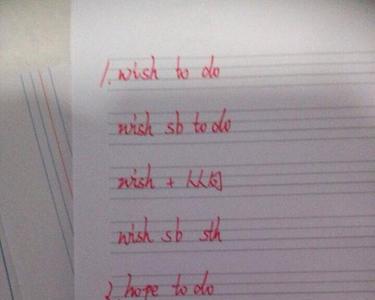 1. wish to do
wish sb to do
wish + 从句
wish sb sth
2. hope to do